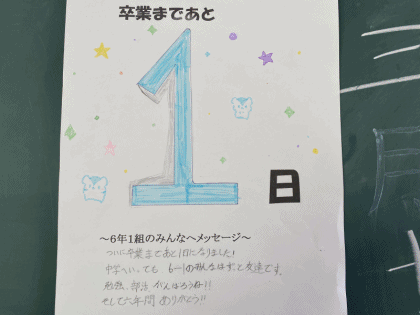 卒業まであと
1
日
～6年1組のみんなへメッセージ～
ついに卒業まであと1日になりました!
中学へいっても 6-1のみんなはずっと友達です。
勉強、部活 がんばろうね!!
そして六年間 ありがとう!!